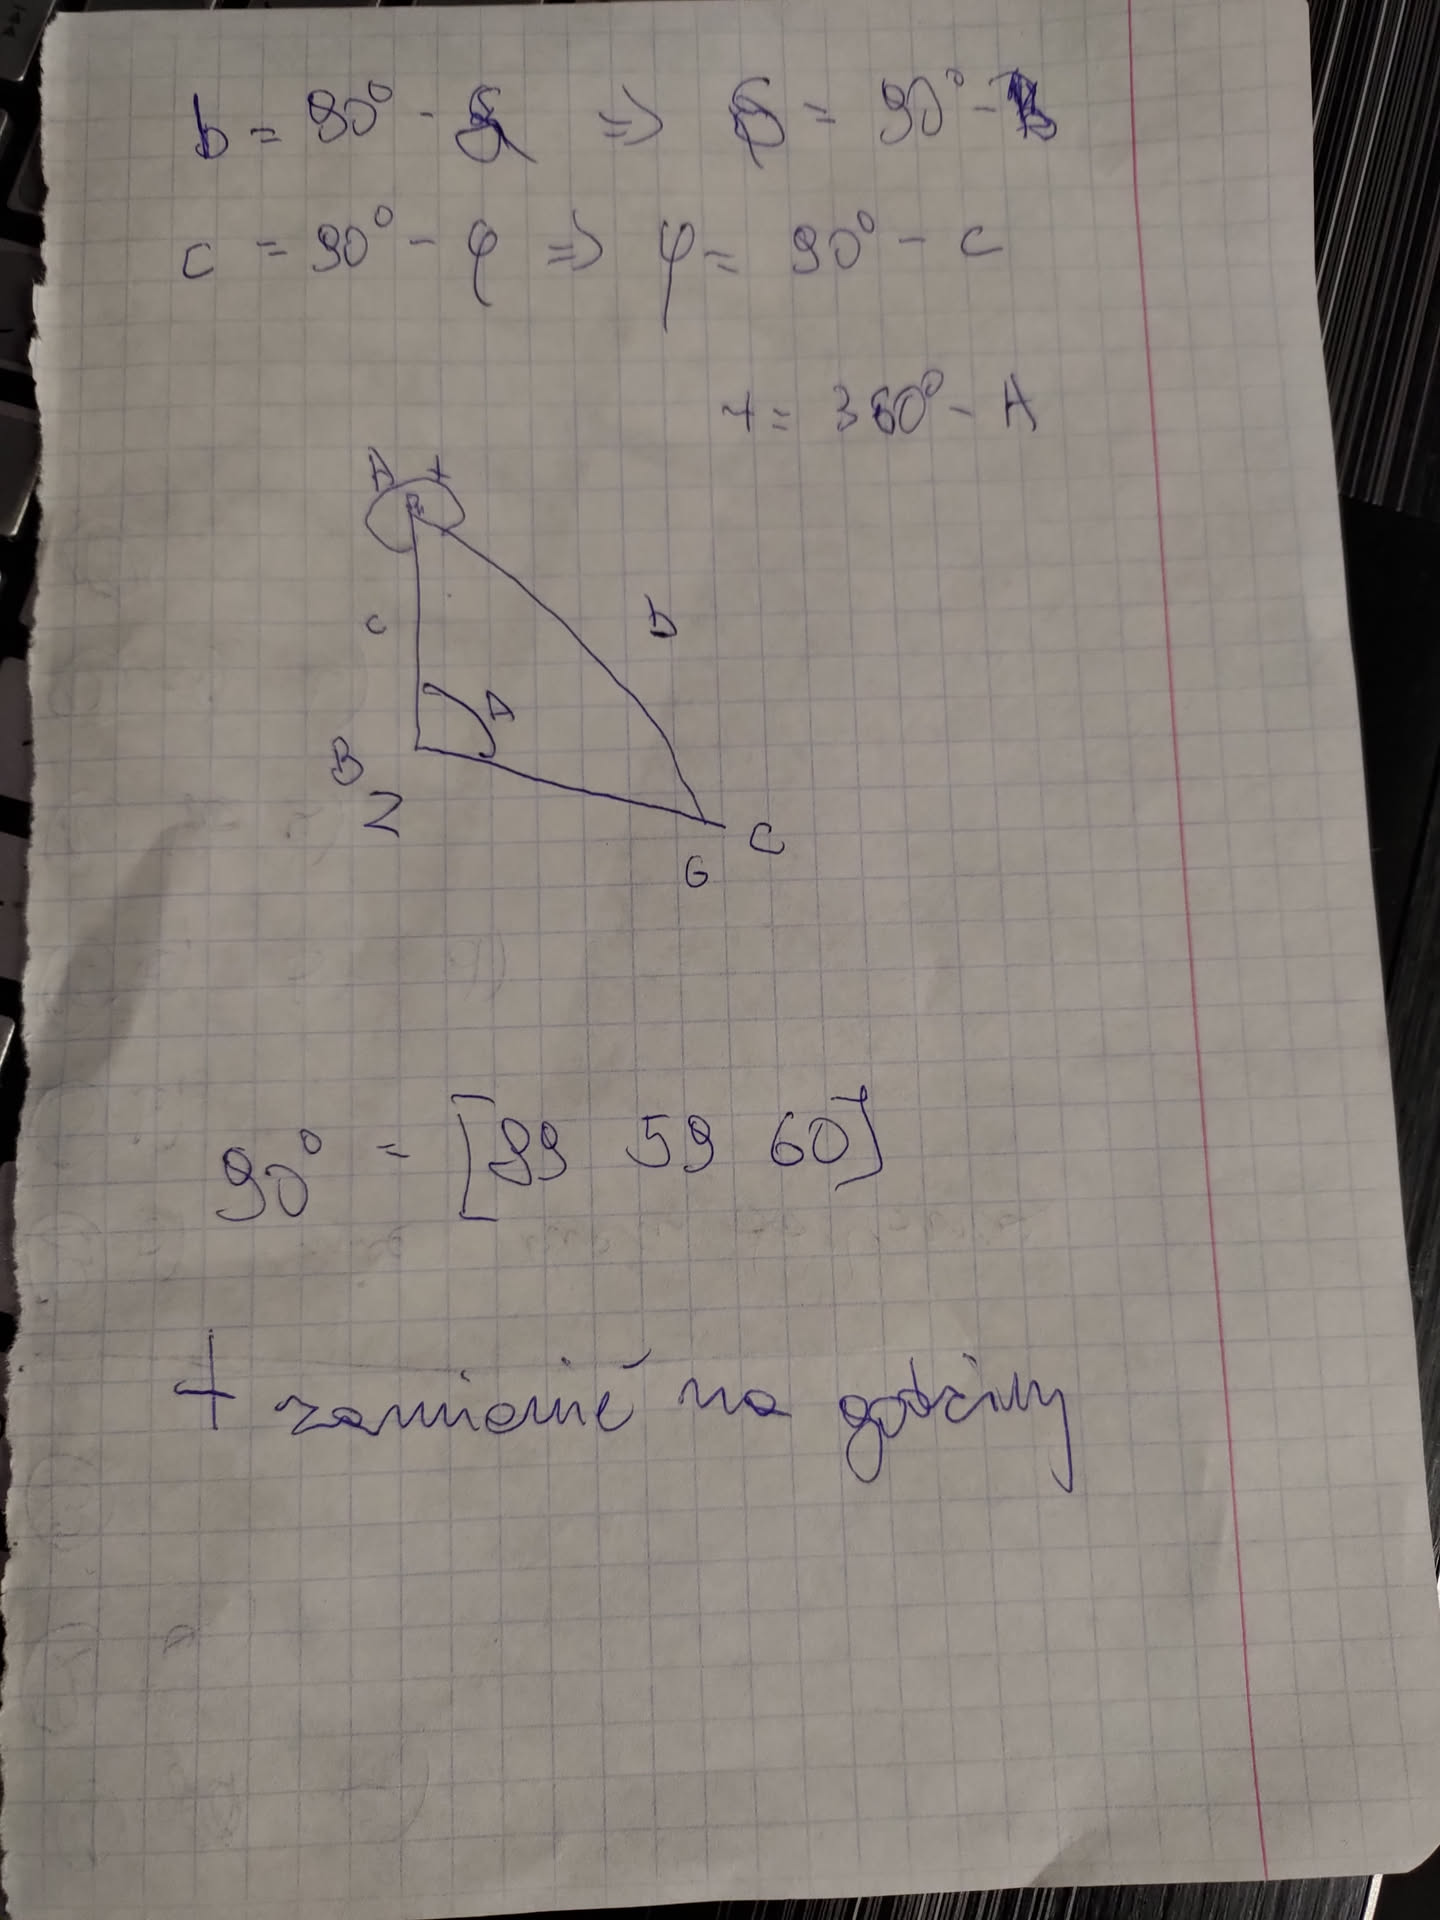 b = 90° - δ ⇒ δ = 90° - b
c = 90° - φ ⇒ φ = 90° - c
t = 360° - A
A t
c b
A
B
Z
C
G
90° = [89 59 60]
t zamienić na godziny